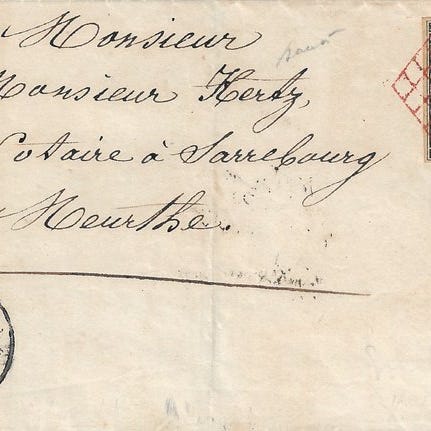 Monsieur
Monsieur Hertz,
Notaire à Sarrebourg
Meurthe.